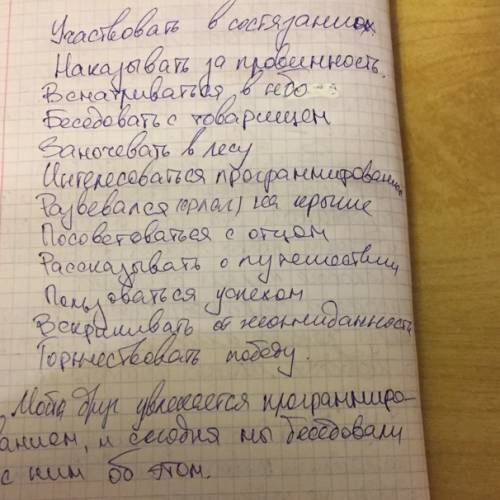 Участвовать в состязаниях
Наказывать за провинность.
Всматриваться в небо
Беседовать с товарищем
Заночевать в лесу
Интересоваться программированием
Развевался (флаг) на крыше
Посоветоваться с отцом
Рассказывать о путешествии
Пользоваться успехом
Вскрикивать от неожиданности
Торжествовать победу.
Мой друг увлекается программиро-
ванием, и сегодня мы беседовали
с ним об этом.